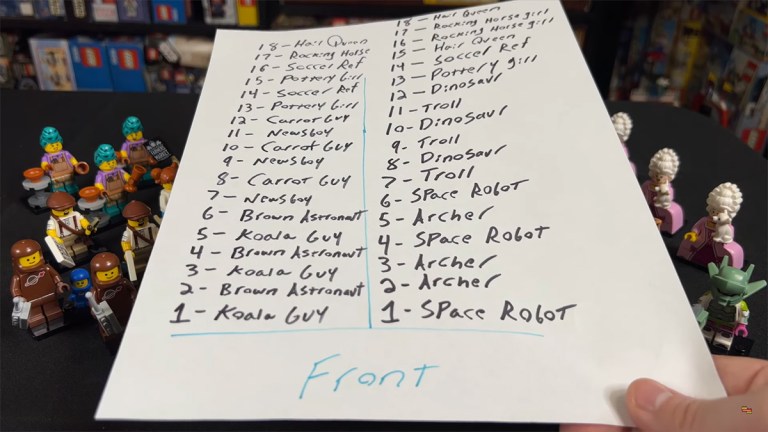 18 - Hair Queen
17 - Rocking Horse
16 - Soccer Ref
15 - Pottery Girl
14 - Soccer Ref
13 - Pottery Girl
12 - Carrot Guy
11 - Newsboy
10 - Carrot Guy
9 - Newsboy
8 - Carrot Guy
7 - Newsboy
6 - Brown Astronaut
5 - Koala Guy
4 - Brown Astronaut
3 - Koala Guy
2 - Brown Astronaut
1 - Koala Guy
18 - Hair Queen
17 - Rocking Horse girl
16 - Rocking Horse girl
15 - Hair Queen
14 - Soccer Ref
13 - Pottery girl
12 - Dinosaur
11 - Troll
10 - Dinosaur
9 - Troll
8 - Dinosaur
7 - Troll
6 - Space Robot
5 - Archer
4 - Space Robot
3 - Archer
2 - Archer
1 - Space Robot
Front